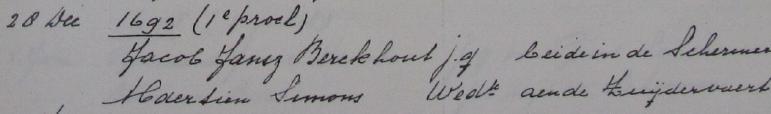 28 Dec 1692 (1e procl)
Jacob Jansz Berckhout j.g beide in de Schermer
Maertien Simons Wede aende Zuijdervaert